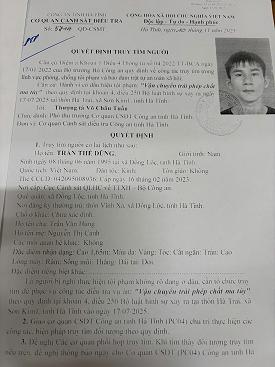 CÔNG AN TỈNH HÀ TĨNH
CƠ QUAN CẢNH SÁT ĐIỀU TRA
CỘNG HÒA XÃ HỘI CHỦ NGHĨA VIỆT NAM
Độc lập - Tự do - Hạnh phúc
QĐ-CSMT
Hà Tĩnh, tháng 11 năm 2025
QUYẾT ĐỊNH TRUY TÌM NGƯỜI
Căn cứ Điểm Khoản Điều 4 Thông tư số 04/2022/TT-BCA ngày
17/01/2022 của Bộ trưởng Bộ Công an quy định về công tác truy tìm trong
lĩnh vực phòng, chống tội phạm và bảo đảm trật tự an toàn xã hội;
Căn cứ Hành vi có dấu hiệu tội phạm: "Vận chuyển trái phép chất
ma túy" theo quy định tại khoản 4, điều 250 Bộ luật hình sự xảy ra ngày
17/07/2025 tại thôn Hà Trai, xã Sơn Kim1, tỉnh Hà Tĩnh;
Tôi: Thượng tá Võ Châu Tuấn
Chức danh: Phó thủ trưởng Cơ quan CSĐT Công an tỉnh Hà Tĩnh
Đơn vị: Cơ quan Cảnh sát điều tra Công an tỉnh Hà Tĩnh
QUYẾT ĐỊNH
1. Truy tìm người có lai lịch như sau:
Họ tên: TRẦN THẾ DŨNG. Giới tính: Nam
Sinh ngày 08 tháng 06 năm 1995 tại xã Đồng Lộc, tỉnh Hà Tĩnh
Quốc tịch: Việt Nam Dân tộc: Kinh Tôn giáo: Không
Thẻ CCCD: Cấp ngày 16 tháng 02 năm 2023
Nơi cấp: Cục Cảnh sát QLHC về TTXH - Bộ Công an
Quê quán: xã Đồng Lộc, tỉnh Hà Tĩnh
Nơi đăng ký thường trú: thôn Vĩnh Xá, xã Đồng Lộc, tỉnh Hà Tĩnh.
Chỗ ở khác: Chưa xác định
Họ tên cha: Trần Văn Hùng
Họ tên mẹ: Nguyễn Thị Cảnh
Các mối quan hệ khác: Không
Đặc điểm nhận dạng: Cao 1,65m; Màu da: Vàng; Tóc: Cắt ngắn; Trán: Cao
Lông mày: Rậm; Sống mũi: Thẳng; Dái tai: Dơi
Đặc điểm riêng biệt khác
Là người bị nghi thực hiện tội phạm không rõ đang ở đâu, cần tổ chức truy
tìm để phục vụ công tác điều tra vụ án: "Vận chuyển trái phép chất ma túy"
theo quy định tại khoản 4, điều 250 Bộ luật Hình sự xảy ra tại thôn Hà Trai, xã
Sơn Kim1, tỉnh Hà Tĩnh vào ngày 17-07-2025.
2. Giao cơ quan CSĐT Công an tỉnh Hà Tĩnh (PC04) chủ trì thực hiện các
công tác, biện pháp truy tìm đối tượng theo quy định.
3. Đề nghị Các cơ quan phối hợp truy tìm. Khi tìm thấy đối tượng truy tìm
nêu trên, đề nghị thông báo ngay cho Cơ quan CSĐT (PC04) Công an tỉnh Hà